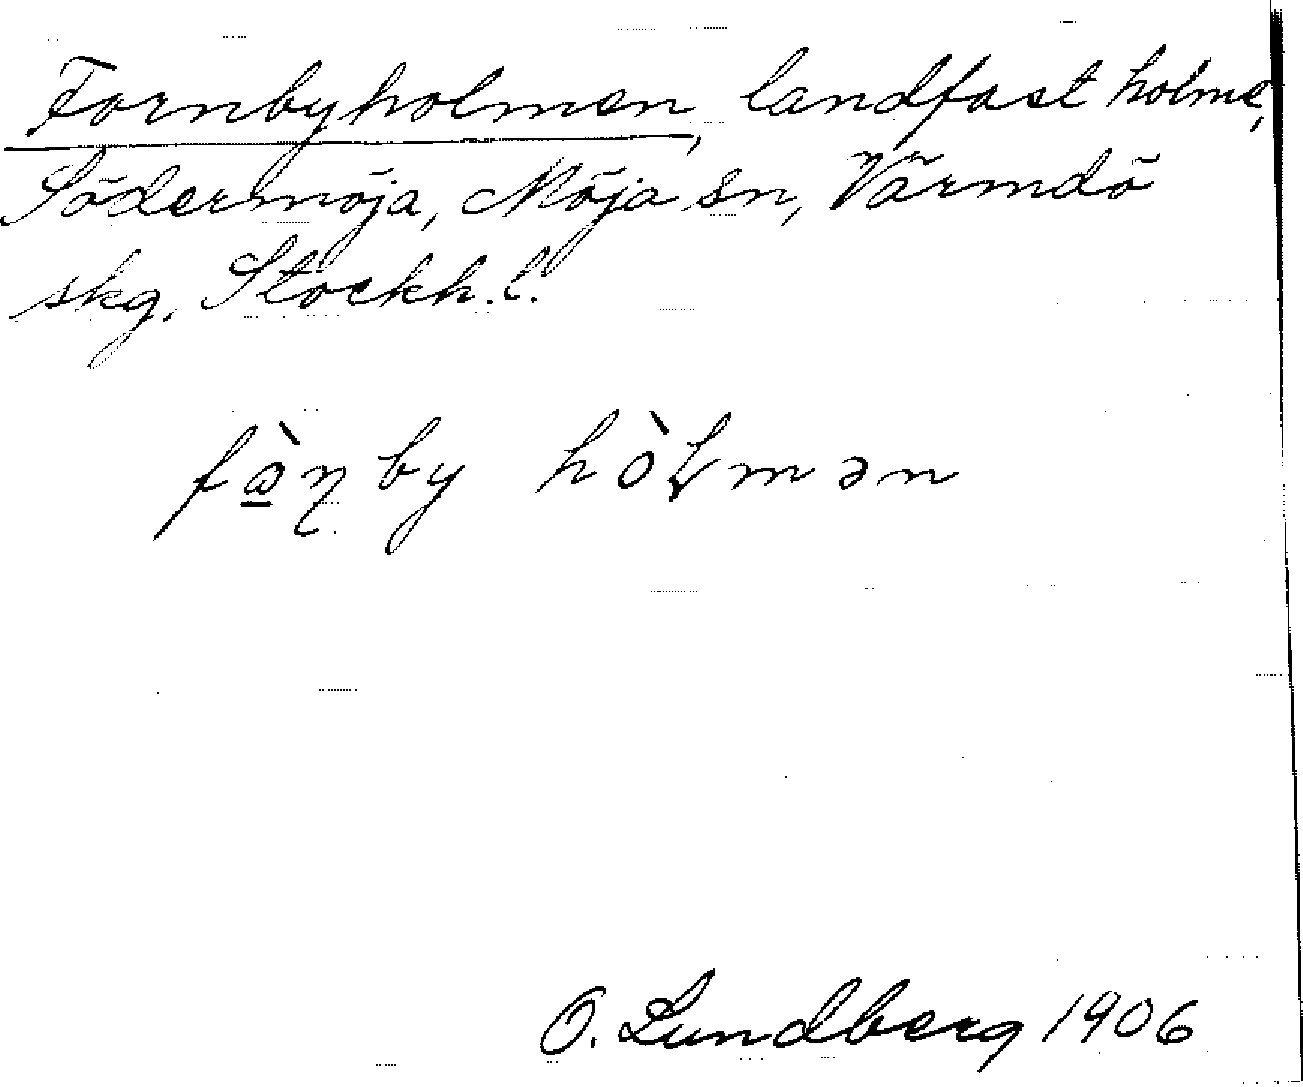 Fornbyholmen, landfast holme,
Södermöja, Möja sn, Värmdö
skg, Stockh. l.
fὼɳby hòɭmən
O. Lundberg 1906